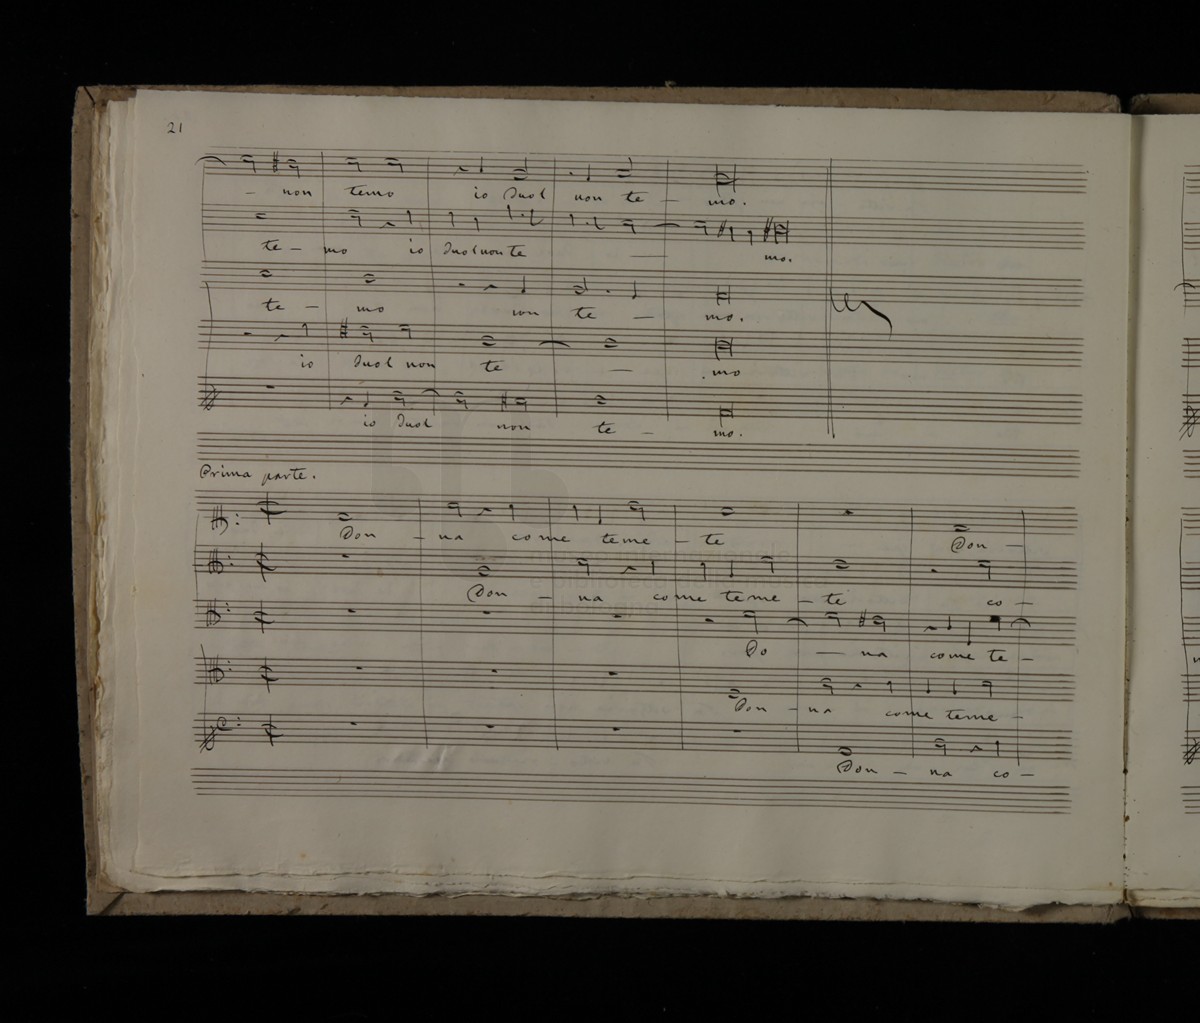 21
– non temo io duol non te – mo.
te – mo io duol non te — mo.
te – mo non te – mo.
io duol non te — . mo
io duol non te – mo.
Prima parte.
Don – na come teme – te Don –
Don – na come teme – te co –
Do — na come te –
Don – na come teme –
Don – na co –